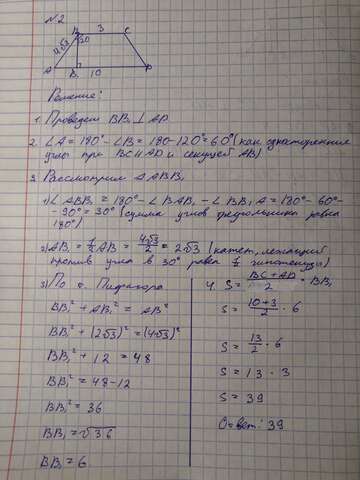 №2
B 3 C
4√3
30
A B₁ 10 D
Решение:
1. Проведем BB₁ ⊥ AD
2. ∠A = 180° - ∠B = 180-120° = 60° (как односторонние
углы при BC∥AD и секущей AB)
3. Рассмотрим △ABB₁
1) ∠ABB₁ = 180° - ∠B₁AB₁ - ∠BB₁A = 180° - 60° -
- 90° = 30° (сумма углов треугольника равна
180°)
2) AB₁ = ½ AB = 4√3/2 = 2√3 (катет, лежащий
против угла в 30° равен ½ гипотенузы)
3) По т. Пифагора
BB₁² + AB₁² = AB²
BB₁² + (2√3)² = (4√3)²
BB₁² + 12 = 48
BB₁² = 48-12
BB₁² = 36
BB₁ = √36
BB₁ = 6
4. S = (BC + AD)/2 · BB₁
S = (10+3)/2 · 6
S = 13/2 · 6
S = 13 · 3
S = 39
Ответ: 39